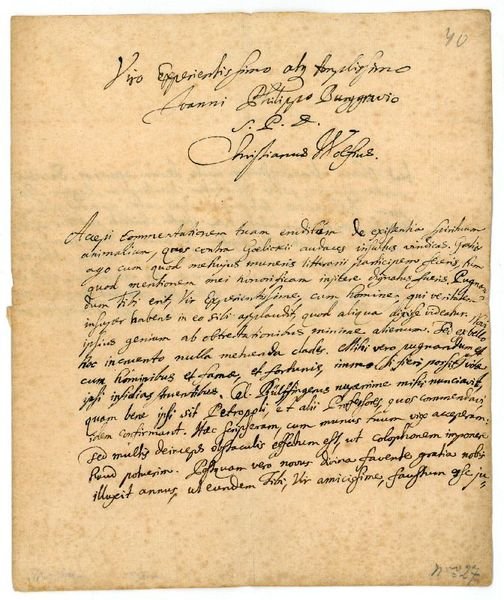 40
Viro Experientissimo atq Amplissimo
Ioanni Philippo Burggravio
S. P. D.
Christianus Wolfius.
Accepi commentationem tuam eruditam de existentia spirituum
animalium, quos contra Goelickii audaces insultus vindicas. Gratias
ago cum quod me hujus muneris litterarii participem feceris, tum
quod mentionem mei honorificam injicere dignatus fueris. Pugnan-
dum Tibi erit, Vir Experientissime, cum homine, qui veritatem
insuper habens in eo sibi applaudit, quod aliqua dixisse videatur. Novi
ipsius genium ab obtrectationibus minime alienum. Sed ex bello
hoc incruento nulla metuenda clades. Mihi vero pugnandum est
cum hominibus et famae, et fortunis, immo si fieri possit vitae
ipsi insidias struentibus. Cel. Bülffingerus nuperrime mihi nunciavit,
quam bene ipsi sit Petropoli, et alii Professores, quos commendavi
idem confirmant. Haec scripseram, cum munus tuum vix acceperam:
sed multis deinceps obstaculis effectum est, ut colophonem imponere
haud potuerim. Postquam vero novus divina favente gratia nobis
illuxit annus, ut eundem Tibi, Vir amicissime, faustum esse ju-
27